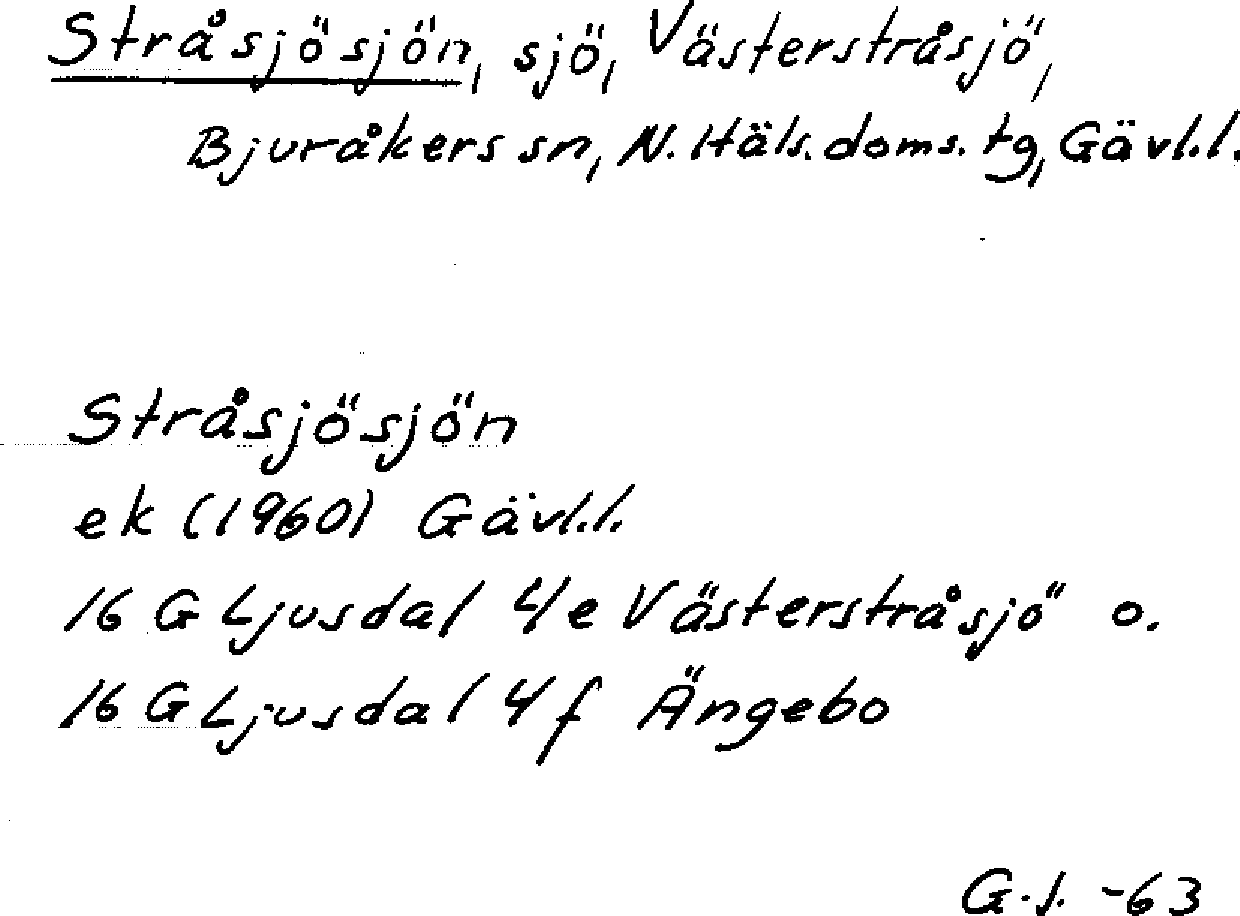 Stråsjösjön, sjö, Västerstråsjö,
Bjuråkers sn, N. Häls. doms. tg, Gävl.l.
Stråsjösjön
ek (1960) Gävl.l.
16 G Ljusdal 4e Västerstråsjö o.
16 G Ljusdal 4f Ängebo
G.S. -63